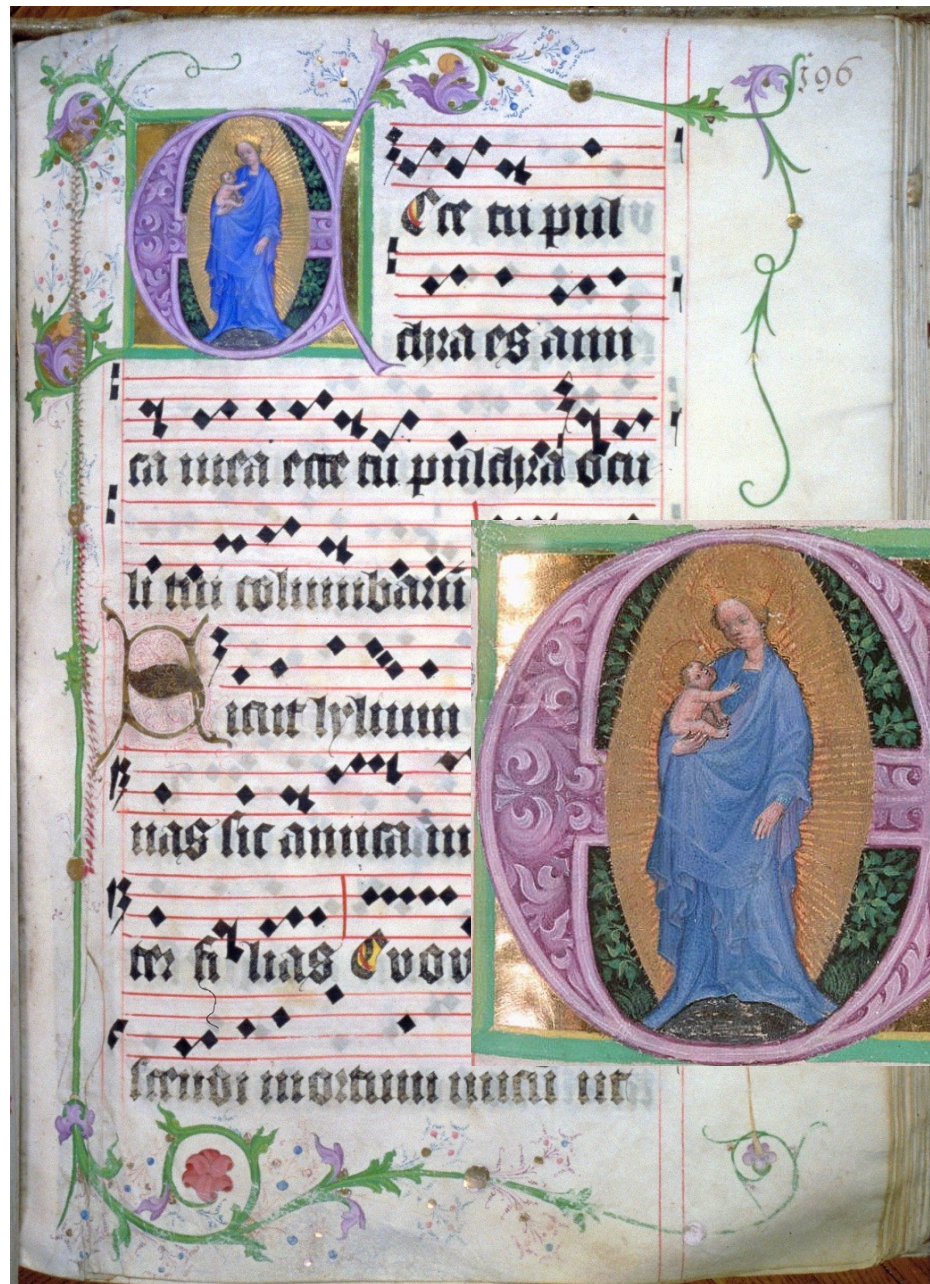 196
ECce tu pul
chra es ami
ca mea ecce tu pulchra ocu
li tui columbarū
Sicut lylium
nas sic amica m
ter filias Evov
scendi in ortum nucū ut